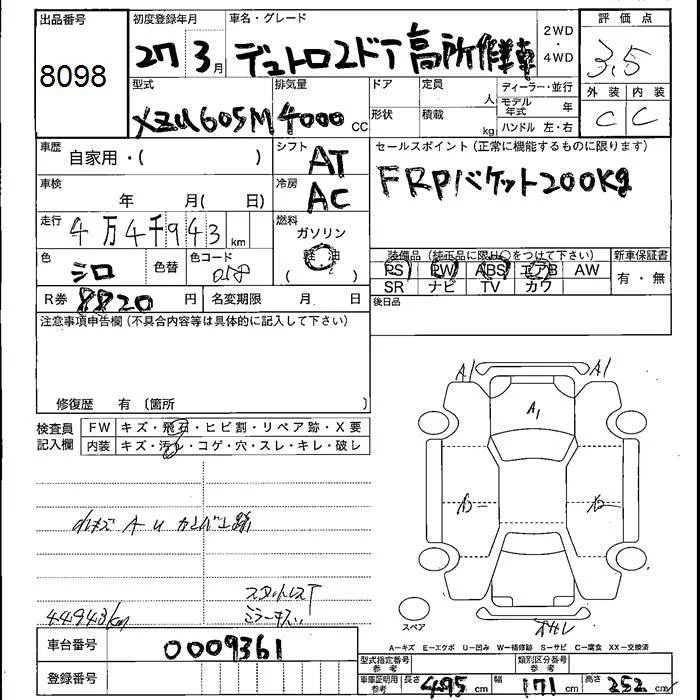 出品番号 初度登録年月 車名・グレード 2WD・4WD 評価点
8098 27 3月 デュトロ2ドT高所作業車 3.5
型式 排気量 ドア 定員 人 ディーラー・並行 外装 内装
XZU605M 4000cc 形状 積載 kg モデル年式 年 ハンドル 左・右 C C
車歴 自家用・( ) シフト AT セールスポイント(正常に機能するものに限ります)
車検 年 月( 日) 冷房 AC FRPバケット200Kg
走行 4万4千943km 燃料 ガソリン 軽油 ( )
色 シロ 色替 色コード 058 装備品(純正品に限り○をつけて下さい) 新車保証書
PS PW ABS エアB AW 有・無
SR ナビ TV カワ
R券 8820円 名変期限 月 日 後日品
注意事項申告欄(不具合内容等は具体的に記入して下さい)
修復歴 有 〔箇所 〕
検査員記入欄 FW キズ・飛石・ヒビ割・リペア跡・X要
内装 キズ・汚れ・コゲ・穴・スレ・キレ・破し
A1 A1
A1
A U
44943km
スペア
A−キズ E−エクボ U−凹み W−補修跡 S−サビ C−腐食 XX−交換済
車台番号 0009361 型式指定番号参考 類別区分番号参考
登録番号 車庫証明用参考 長さ 495cm 幅 171cm 高さ 252cm